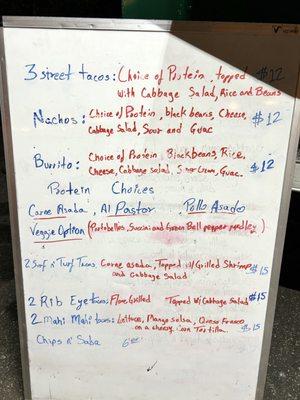 3 street tacos: Choice of Protein, topped $12
with Cabbage Salad, Rice and Beans
Nachos: Choice of Protein, black beans, Cheese, $12
Cabbage Salad, Sour and Guac
Burrito: Choice of Protein Black beans, Rice, $12
Cheese, Cabbage salad, Sour Cream, Guac.
Protein Choices
Carne Asada, Al Pastor, Pollo Asado
Veggie Option (Portobellos, Succini and Green Bell pepper medley)
2 Surf n' Turf Tacos: Carne asada, Topped w/ Grilled Shrimp $15
and Cabbage Salad
2 Rib Eye tacos: Flame Grilled Topped W/ Cabbage Salad $15
2 Mahi Mahi tacos: Lettuce, Mango salsa, Queso Fresco
on a cheesy Corn Tortilla. $15
Chips n' Salsa 6